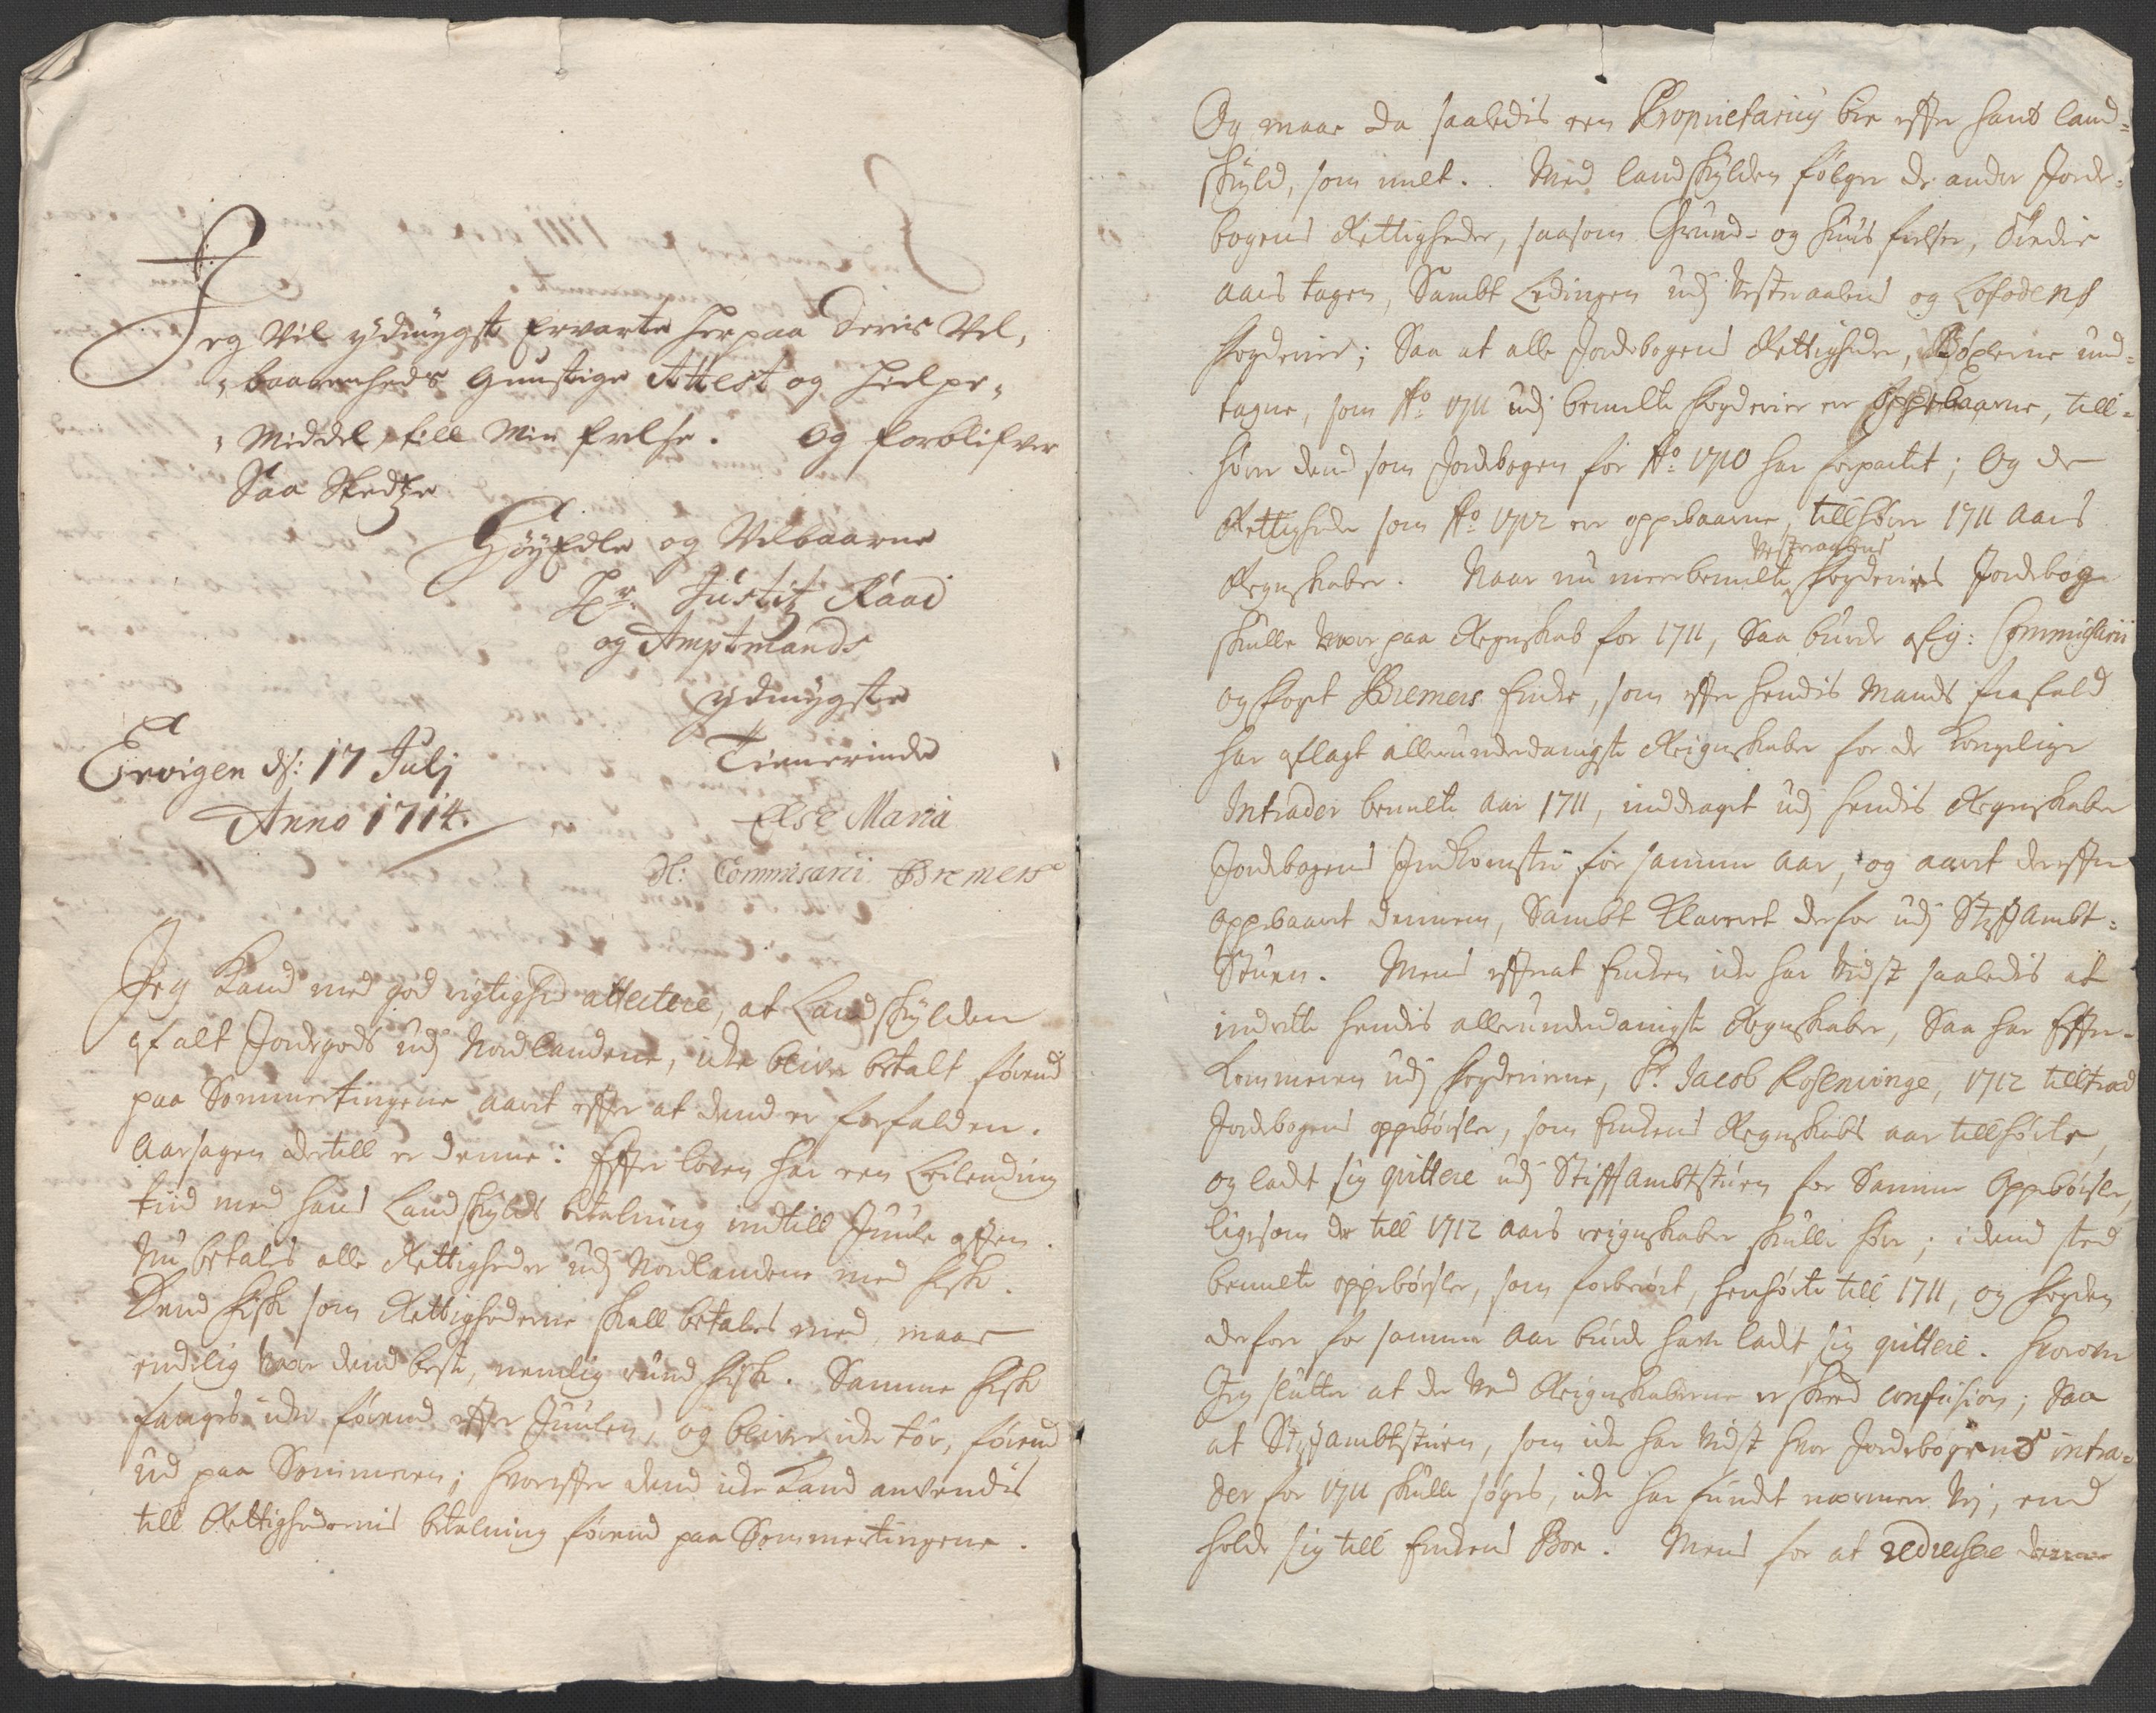 Jeg Vil ydmygst Erwarte herpaa Deris Vel,
,baarenheds Gunstige Attest og hielpe,
,Middel, till Min frelse. Og forblifver
Saa Stedtze
HöyEdle og Velbaarne
Hr. Justitz Raad
og Amptmands
ydmygste
Tienerinde
Ervigen ds: 17 Julj
Anno 1714.
Else Maria
Sl: Commisarii Bremers
Jeg Kand med god rigtighed attestere, at Landskylden
af alt Jordegods udj Nordlandene, icke bliver betalt förend
paa Sommertingene aaret efter at dend er forfalden.
Aarsagen dertill er denne: Efter loven har een Leilending
tiid med hans Landskylds betalning indtill Juule aften.
Nu betales alle Rettigheder udj Nordlandene med fisk.
Dend fisk som Rettighederne skall betales med, maae
endelig være dend beste, nemlig rund fisk. Samme fisk
fanges icke förend efter Juulen, og bliver icke tör, förend
ud paa Sommeren; hvorefter dend icke Kand anvendis
till Rettighedernis betalning förend paa Sommertingene.
Og maae da saaledis een Proprietarius bie efter hans land-
skyld, som melt. Med landskylden fölger de andre Jorde-
bogens Rettigheder, saasom Grund- og huus frelser, tredie
aars tagen, Sambt Ledingen udj Vesteraalens og Lofodens
fogderier; Saa at alle Jordebogens Rettigheder, Böxlerne und-
tagne, som Ao: 1711 udj bemelte fogderier er oppebaarne, till-
hörer dend som Jordebogen for Ao: 1710 har forpactet; Og de
Rettigheder som Ao: 1712 er oppebaarne, tillhörer 1711 aars
Regnskaber. Naar nu meerbemelte Vesteraalens fogderies Jordebog
skulle være paa Regnskab for 1711, Saa burde afg: Commissarii
og fogt Bremers Encke, som efter hendis Mands frafald
har aflagt allerunderdanigste Reignskaber for de Kongelige
Intrader bemelte aar 1711, inddraget udj hendis Regnskaber
Jordebogens Indkomster for samme aar, og aaret derefter
oppebaaret dennem, Sambt Klareret derfor udj Stiftambt-
Stuen. Mens efterat Encken icke har vidst saaledis at
indrette hendis allerunderdanigste Regnskaber, Saa har Efter-
kommeren udj fogderierne, Sr. Jacob Rosenvinge, 1712 tilltræd
Jordebogens oppebörsler, som Enckens Regnskabs aar tillhörte,
og ladt sig qvittere udj Stiftambtstuen for Samme Oppebörsler,
ligesom de till 1712 aars reignskaber skulle höre; i dend sted
bemelte oppebörsler, som forberört, henhörte till 1711, og fogden
derfore for samme aar burde have ladt sig qvittere. Hvorover
Jeg slutter at der ved Reignskaberne er skeed confusion; Saa
at Stiftambtstuen, som icke har vidst hvor Jordebogens intra-
der for 1711 skulle söges, icke har fundt nærmere vej, end
holde sig till Enckens Boe. Mens for at redressere denne